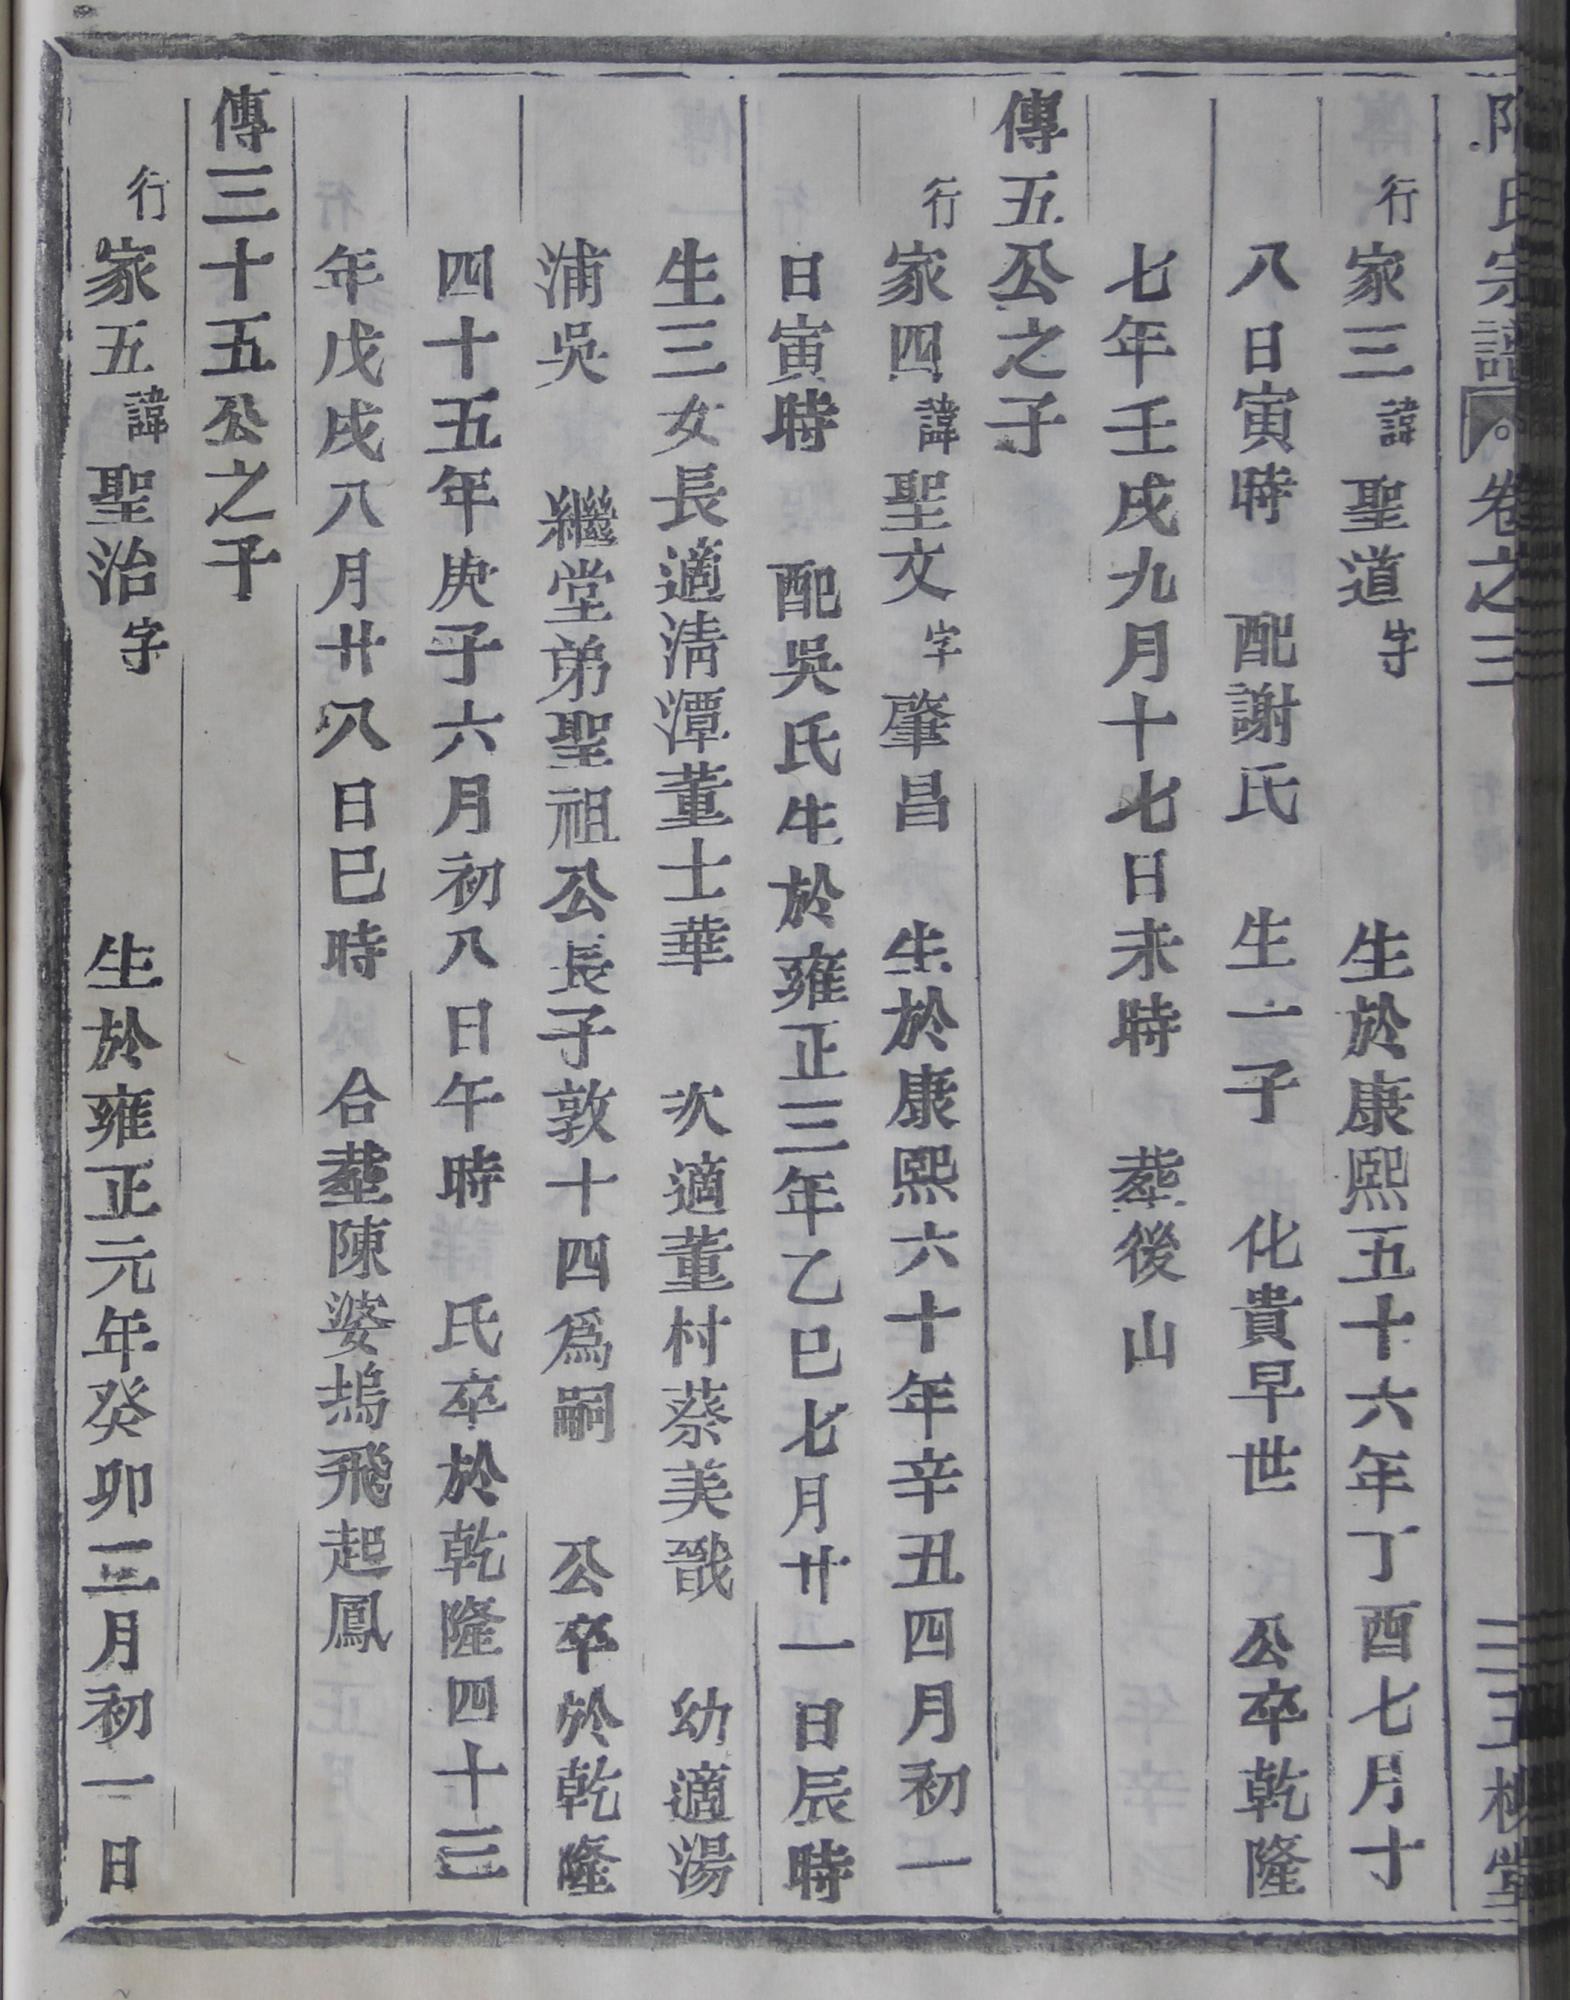 氏宗譜 卷之三 三槐堂
行家三諱聖道字 生於康熙五十六年丁酉七月十
八日寅時 配謝氏 生一子 化貴早世 公卒乾隆
七年壬戌九月十七日未時 葬後山
傳五公之子
行家四諱聖文字肇昌 生於康熙六十年辛丑四月初一
日寅時 配吳氏生於雍正三年乙巳七月廿一日辰時
生三女長適清潭董士華 次適董村蔡美戩 幼適湯
浦吳 繼堂弟聖祖公長子敦十四爲嗣 公卒於乾隆
四十五年庚子六月初八日午時 氏卒於乾隆四十三
年戊戌八月廿八日巳時 合塟陳婆塢飛起鳳
傳三十五公之子
行家五諱聖治字 生於雍正元年癸卯三月初一日